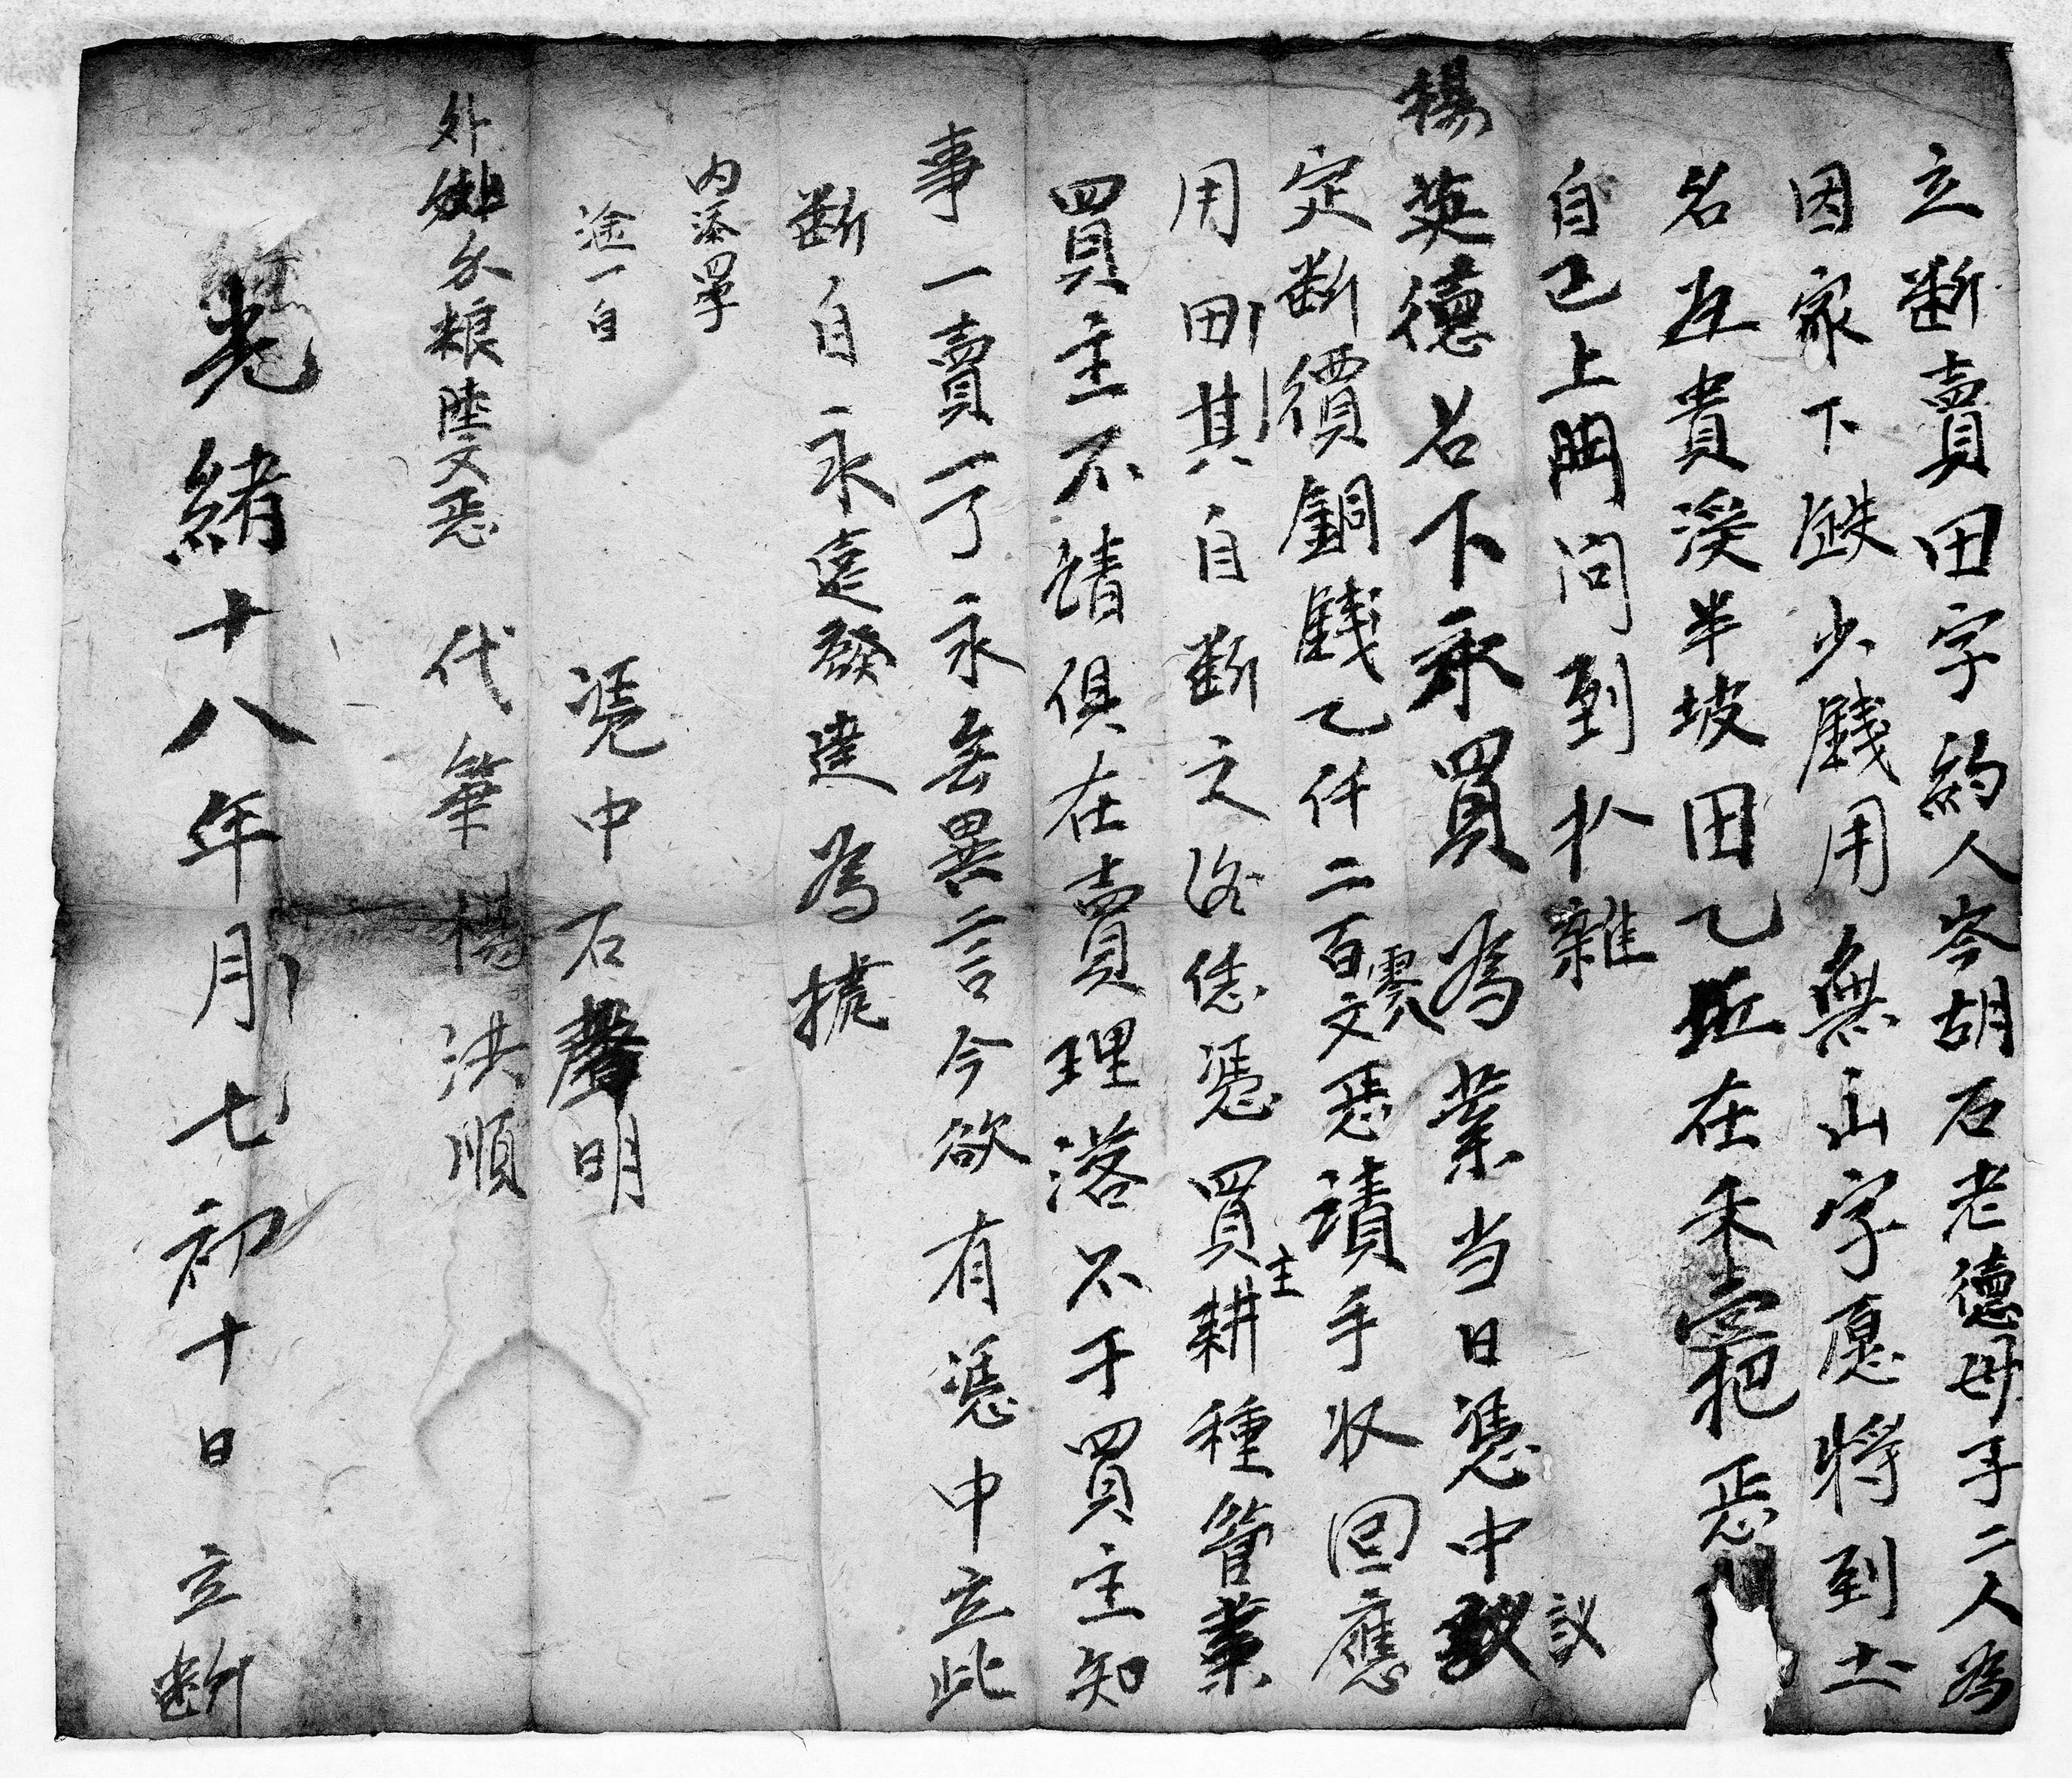 立断賣田字約人岑胡石老德母子二人為
因家下缺少錢用無山字愿將到土
名互貴溪半坡田乙坵在禾把恶
自己上門問到扒雜
楊英德名下承買為業当日憑中議
議
定断價銅錢乙仟二百零八文恶請手收回應
用田其自断之洛恁憑買主耕種管業
買主不請俱在賣理落不于買主知
事一賣一了永無異言今欲有憑中立此
断自永遠發達為據
内添四字
途一自
憑中石聲明
外糸粮陸文恶 代筆楊洪順
光緒十八年月七初十日 立断